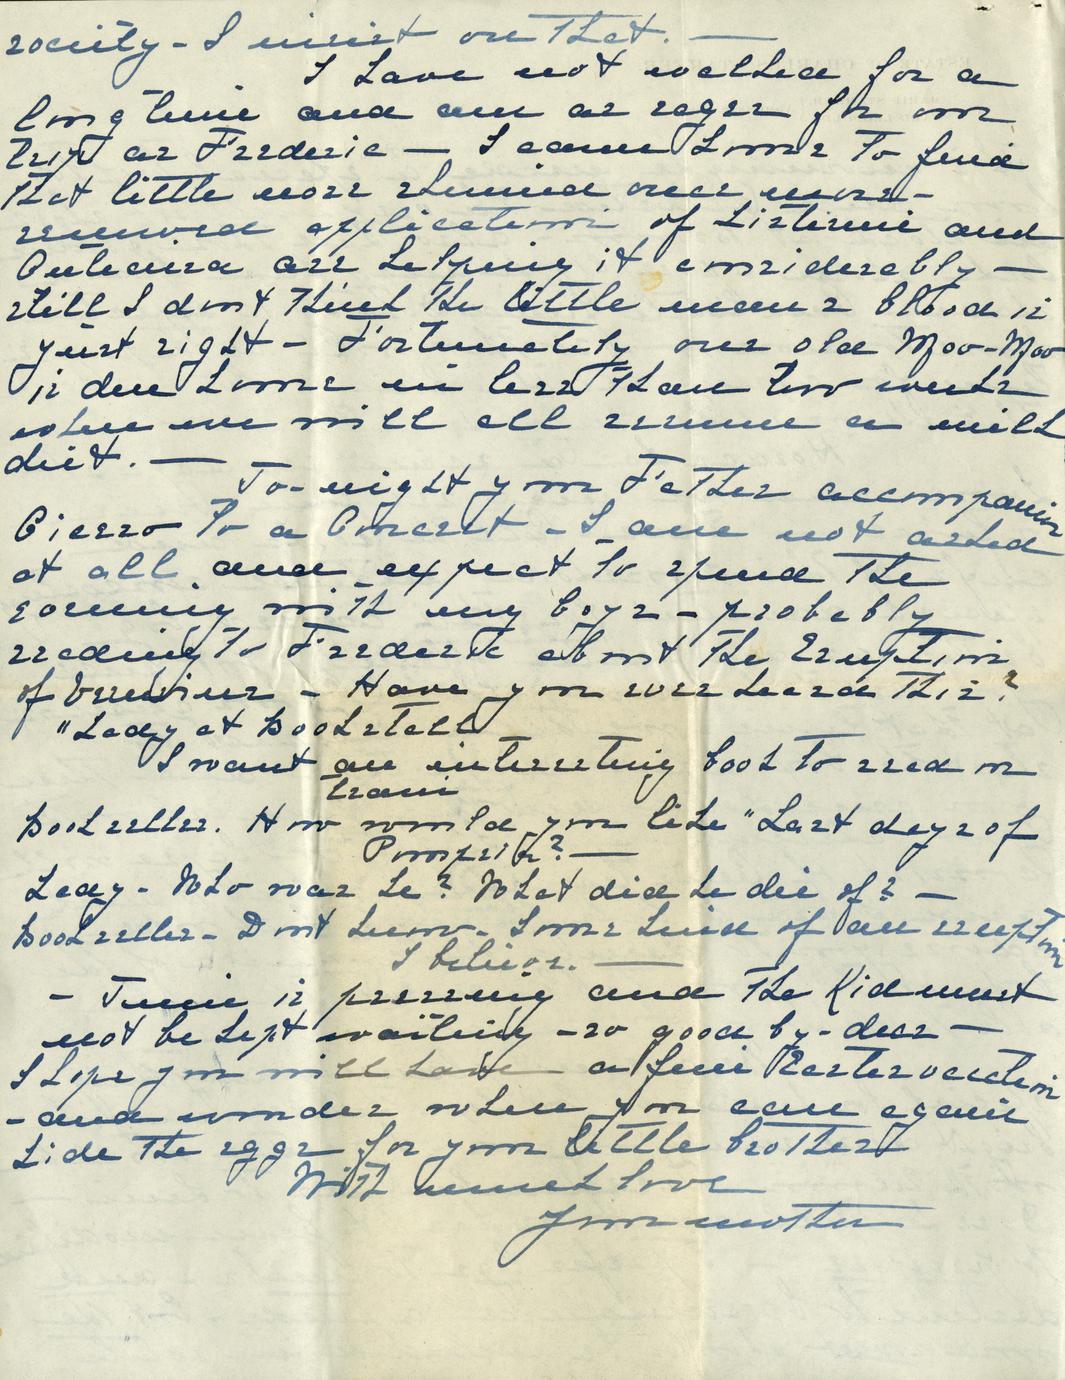 society - I insist on that. —
I have not walked for a
long time and am as eager for our
trip as Frederic — I came home to find
that little nose skinned once more -
renewed applications of Listerine and
Cuticura are helping it considerably —
still I dont think the little man's blood is
just right - Fortunately our old Moo-Moo
is due home in less than two weeks
when we will all resume a milk
diet. —
To-night your Father accompanies
Pierro to a Concert - I am not asked
at all and expect to spend the
evening with my boys - probably
reading to Frederic about the Eruption
of Vesuvius - Have you ever heard this?
"Lady at Bookstall
I want an interesting book to read on
train
Bookseller. How would you like "Last days of
Pompeii"? —
Lady - Who was he? What did he die of? —
Bookseller - Dont know. Some kind of an eruption
I believe. —
- Time is pressing and the Kid must
not be kept waiting - so good by - dear —
I hope you will have a fine Easter vacation
- and wonder when you can again
hide the eggs for your little brother
With much love
Your mother